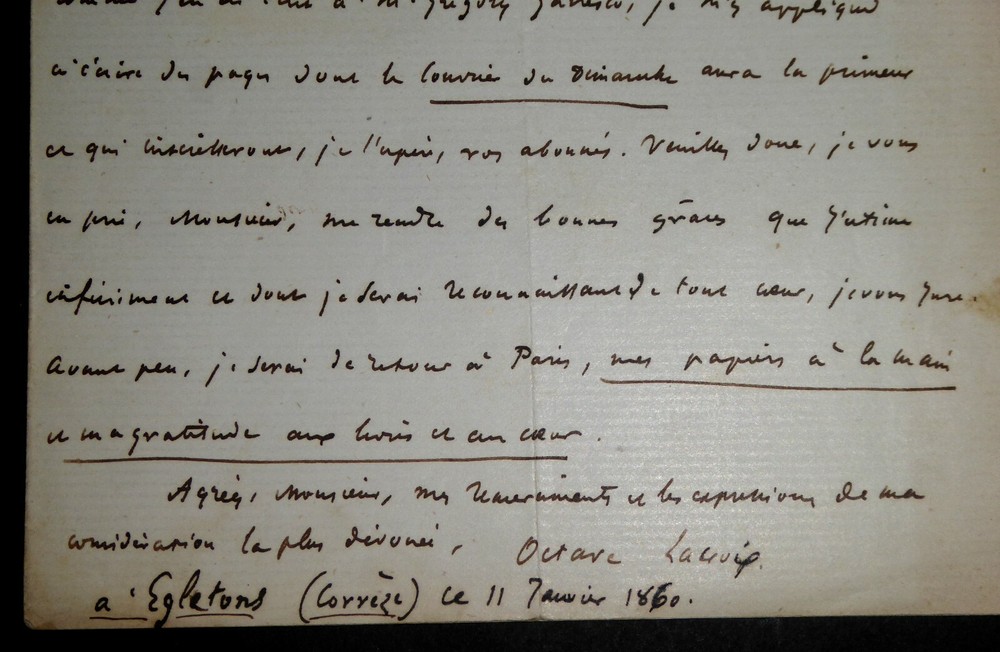 comme j'en ai écrit à M. Grégory Ganesco, je m'y applique
à écrire des pages dont le Courrier du Dimanche aura la primeur
et qui intéresseront, je l'espère, vos abonnés. Veuillez donc, je vous
en prie, Monsieur, me rendre des bonnes grâces que j'estime
infiniment et dont je serai reconnaissant de tout cœur, je vous jure.
Avant peu, je serai de retour à Paris, mes papiers à la main
et ma gratitude aux lèvres et au cœur.
Agréez, Monsieur, mes remerciments et les expressions de ma
considération la plus dévouée,
Octave Lacroix.
à Egletons (Corrèze) ce 11 Janvier 1860.